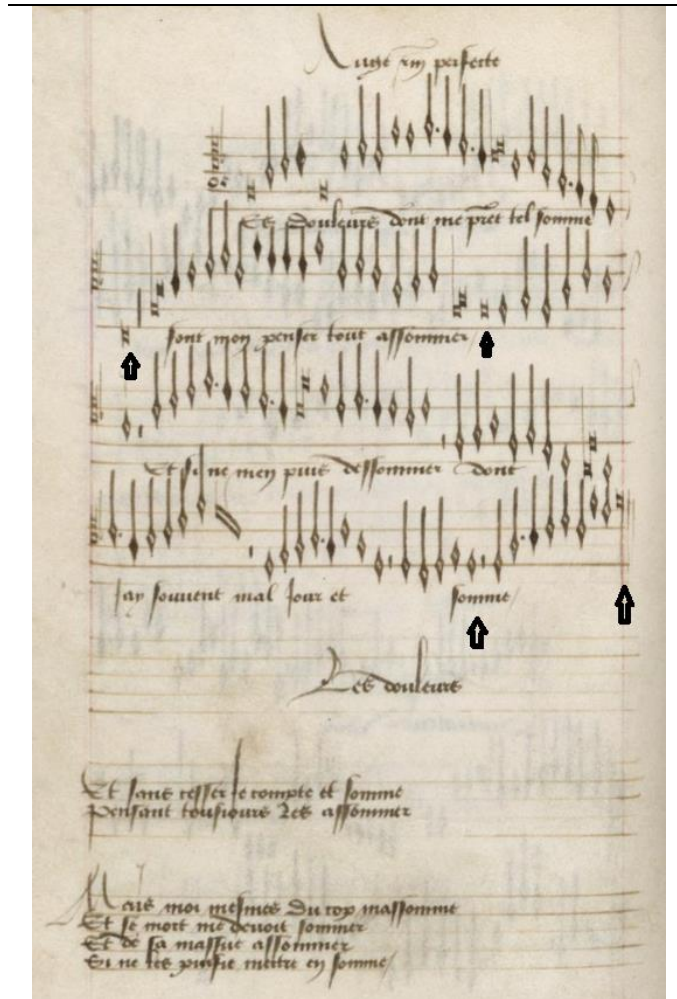 perfecte
Les Douleurs dont me pret tel somme
sont mon penser tout assommer
Et si ne men puis dessommer dont
Jay souvent mal Jour et somme
Les douleurs
Et sans cesser Je compte et somme
Pensant tousiours Les assommer
Mais moi mesmes Du cop massomme
Et se mort me devoit sommer
Et de sa massue assommer
Si ne les puisse mettre en somme